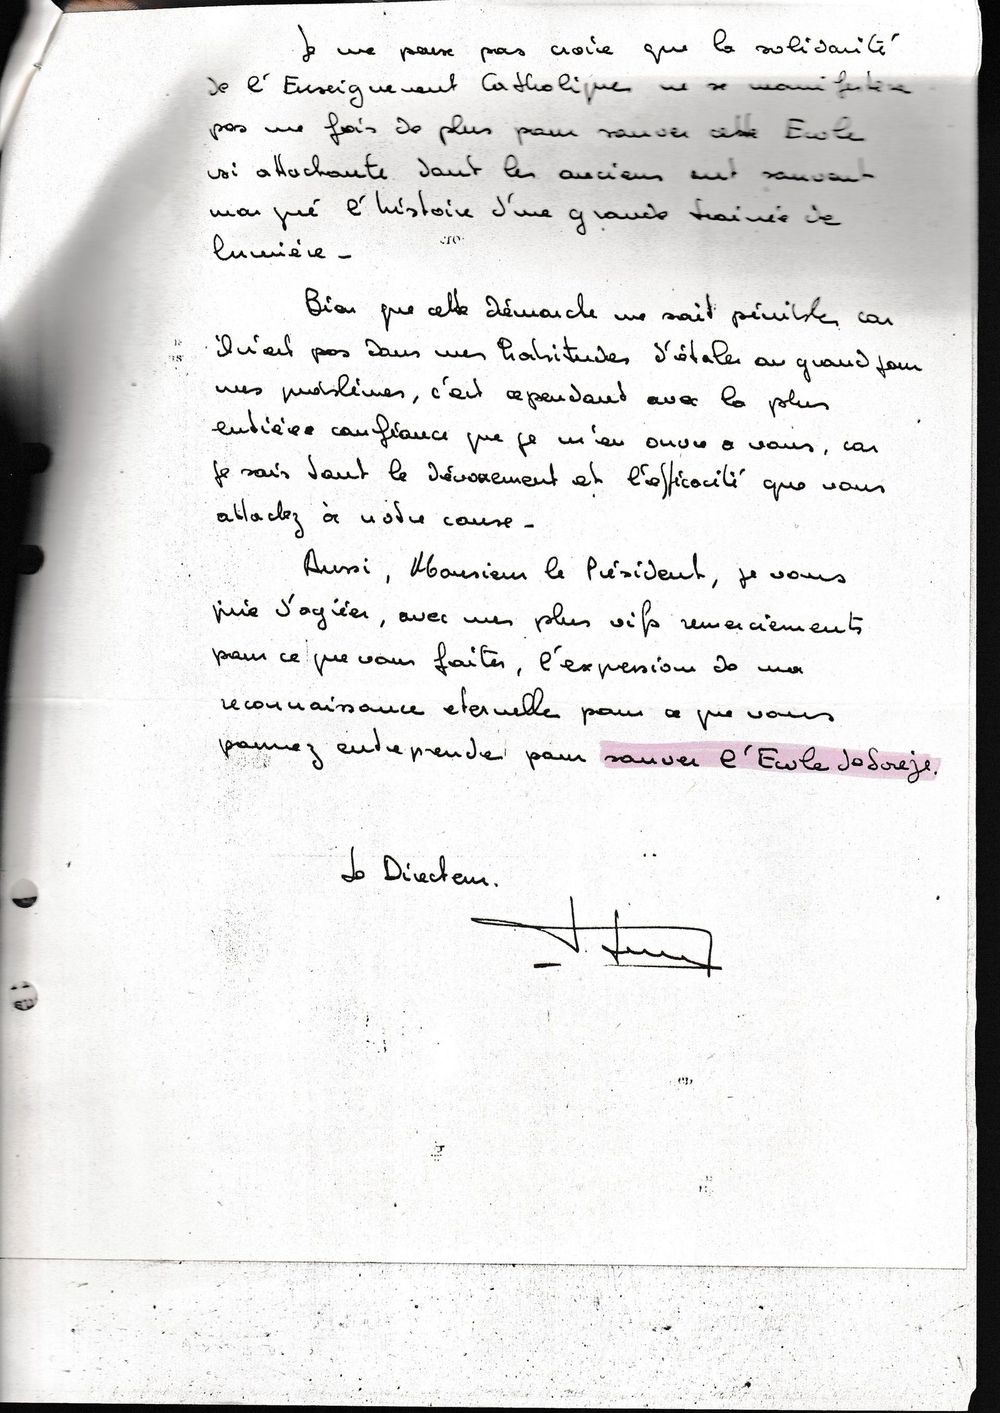 Je ne peux pas croire que la solidarité
de l'Enseignement Catholique ne se manifestera
pas une fois de plus pour sauver cette Ecole
si attachante dont les anciens ont souvent
marqué l'histoire d'une grande trainée de
lumière -
Bien que cette démarche me soit pénible, car
il n'est pas dans mes habitudes d'étaler au grand jour
mes problèmes, c'est cependant avec la plus
entière confiance que je m'en ouvre a vous, car
je sais tout le dévouement et l'efficacité que vous
attachez à notre cause -
Aussi, Monsieur le Président, je vous
prie d'agréer, avec mes plus vifs remerciements
pour ce que vous faites, l'expression de ma
reconnaissance eternelle pour ce que vous
pourrez entreprendre pour sauver l'Ecole de Sorèze.
Le Directeur.